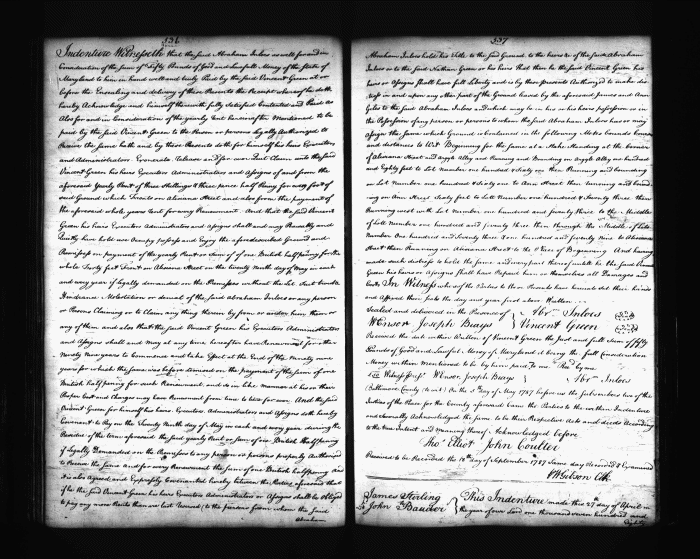 536
Indenture Witnesseth that the said Abraham Inloes as well for and in
Consideration of the sum of Fifty Pounds of Good and Lawfull Money of the State of
Maryland to him in hand well and truly Paid by the said Vincent Green at or
before the Ensealing and delivery of these Presents the Receipt whereof he doth
hereby Acknowledge and himself therewith fully Satisfied Contented and Paid as
Also for and in Consideration of the yearly Rent hereinafter Mentioned to be
paid by the said Vincent Green to the Person or persons legally Authorized to
Receive the same hath and by these Presents doth for himself his heirs Executors
and Administrators Exonerate Release and for ever Quit Claim unto the said
Vincent Green his heirs Executors Administrators and Assigns of and from the
aforesaid Yearly Rent of three Shillings & three pence half Penny for every foot of
said Ground which Fronts on Alisanna Street and also from the payment of
the aforesaid whole years Rent for any Renewment. And that the said Vincent
Green his heirs Executors Administrators and Assigns shall and may Peaceably and
Quietly have hold use Occupy possess and Enjoy the aforedescribed Ground and
Premises on payment of the yearly Rent or Sum of one British half penny for the
whole Sixty feet Front on Alisanna Street on the twenty Ninth day of May in each
and every year if legally demanded on the Premises without the Let Suit trouble
Hindrance Molestation or denial of the said Abraham Inloes or any person
or Persons Claiming or to Claim any thing therein by from or under him them or
any of them and also that the said Vincent Green his Executors Administrators
and Assigns shall and may at any time hereafter have Renewment for
Ninety Nine years to Commence and to take Effect at the End of the Ninety nine
years for which the same is before demised on the payment of the sum of one
British half penny for such Renewment and so in like manner at his or their
Proper Cost and Charges may have Renewment from time to time for ever. And the said
Vincent Green for himself his heirs Executors Administrators and Assigns doth hereby
Covenant to Pay on the Twenty Ninth day of May in each and every year during the
Residue of the term aforesaid the said yearly Rent or Sum of one British halfpenny
if legally Demanded on the Premises to any person or persons properly Authorized
to Receive the same And for every Renewment the sum of one British half penny And
it is also Agreed and Expressly Covenanted hereby between the Parties aforesaid that
if he the said Vincent Green his heirs Executors Administrators or Assigns shall be obliged
to pay any more Rents than are last Named to the persons from whom the said
Abraham
537
Abraham Inloes holds his Title to the said Ground to the heirs &c of the said Abraham
Inloes or to the said Nathan Green or his heirs that then he the said Vincent Green his
heirs or Assigns shall have full Liberty and is by these presents Authorized to make
in and upon any other part of the Ground leased by the aforesaid
to the said Abraham Inloes and which may be in his or his heirs possession or in
the Possession of any person or persons to whom the said Abraham Inloes has or may
Assign the same which Ground is Contained in the following Metes Courses
and distances to Wit Beginning for the same at a Stake Standing at the Corner
of Alisanna Street and Argyle Alley and Running and Bounding on Argyle Alley one hundred
and Eighty feet to Lot number one hundred & Sixty one then Running and bounding
on Lot Number one hundred and Sixty one to Ann Street then running and bound
ing on Ann Street Sixty feet to Lot number one hundred & Seventy three then
Running west with Lot number one hundred and Seventy three to the Middle
of Lott Number one hundred and Seventy three then through the Middle of Lotts
Number One hundred and Seventy three &
Street then Running on Alisanna Street to the Place of Beginning. And having
made such distress to hold the same and every part thereof untill he the said Vincent
Green his heirs or Assigns shall have Repaid him or themselves all Damages and
Costs In Witness whereof the Parties to these Presents have hereunto set their hands
and Affixed their Seals the day and year first above Written
Sealed and delivered in the Presence of } Abrm. Inloes
Winson Joseph Bays } Vincent Green
Received the date within Written of Vincent Green the just and full Sum of fifty
Pounds of Good and Lawful Money of Maryland it being the full Consideration
Money within Mentioned to be by him paid to me Recd. by me
Winson Joseph Bays } Abrm. Inloes
Baltimore County to wit: On the 5 day of May 1787 before us the Subscribers two of the
Justices of the Peace for the County aforesaid Came the Parties to the within Indenture
and Severally Acknowledged the same to be their Respective Act and deeds According
to the true Intent and Meaning thereof Acknowledged before
Tho. Elliot John Coulter
Received to be Recorded the 14th Day of September 1787 Same day Recorded & Examined
Wm Gibson Clk
James Sterling
& John Bauduc } This Indenture made this 27th day of April in
the year of our Lord one thousand seven hundred and
Eighty